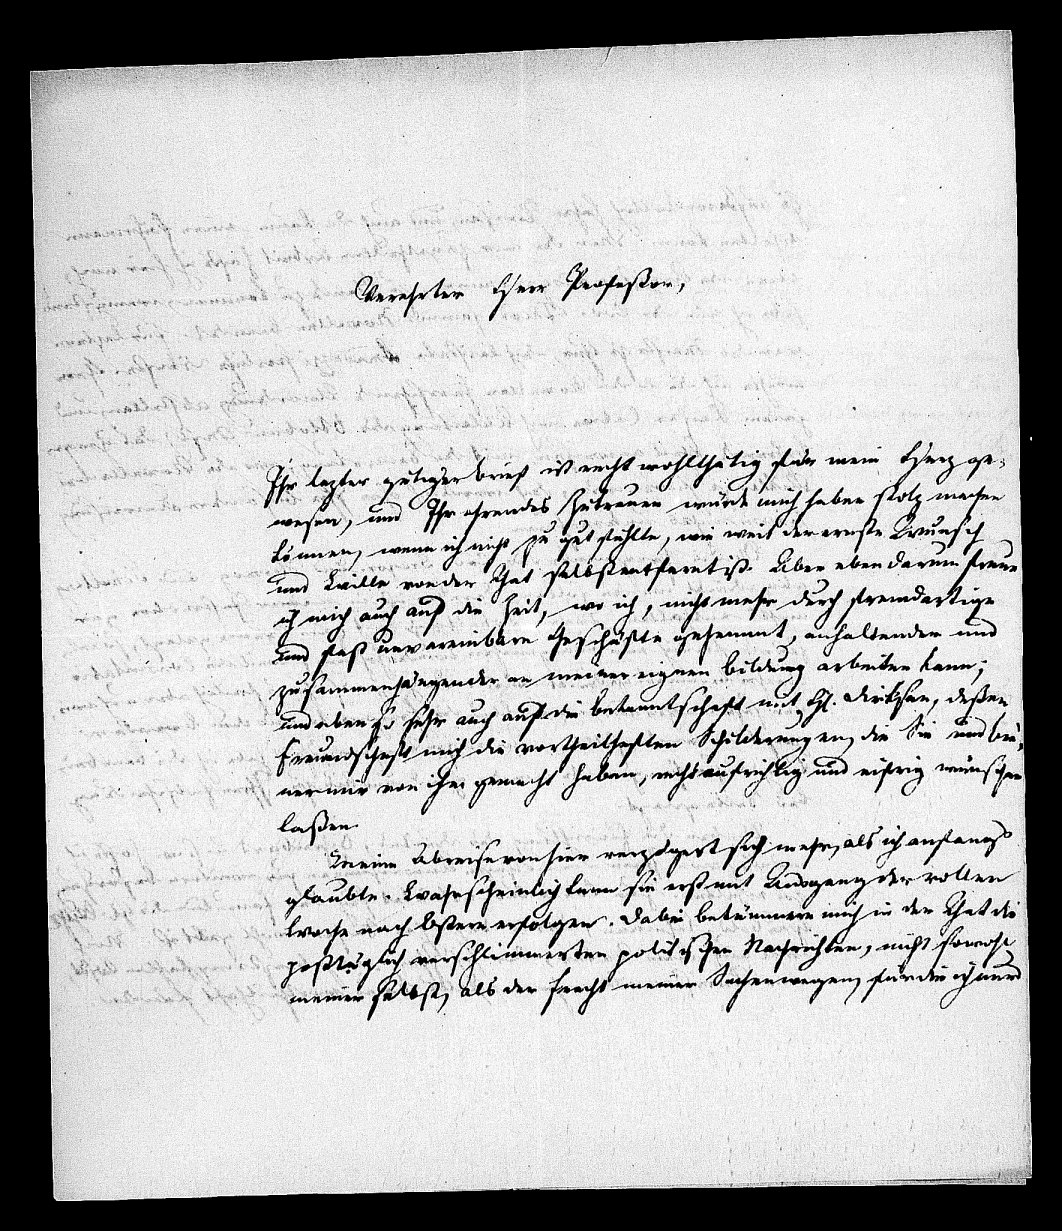 Verehrter Herr Profeßor,
Ihr lezter gütiger Brief ist recht wohlthätig für mein Herz ge-
wesen, und Ihr ehrendes Zutrauen würde mich haben stolz machen
können, wenn ich nicht zu gut fühlte, wie weit der ernste Wunsch
und Wille von der That selbst entfernt ist. Aber eben darum freue
ich mich auch auf die Zeit, wo ich, nicht mehr durch fremdartige
und fast unvereinbare Geschäfte gehemmt, anhaltender und
zusammenhängender an meiner eignen Bildung arbeiten kann;
und eben so sehr auch auf die Bekanntschaft mit H. deßen
Freundschaft mich die vortheilhaften Schilderungen, die Sie und
mir von ihm gemacht haben, recht aufrichtig und eifrig wünschen
laßen.
Meine Abreise von hier verzögert sich mehr, als ich anfangs
glaubte. Wahrscheinlich kann sie erst mit Ausgang der vollen
Woche nach Ostern erfolgen. Dabei bekümmern mich in der That die
posttäglich verschlimmerten politischen Nachrichten, nicht sowohl
meiner selbst, als der Fracht meiner Sachen wegen, für die ich nun